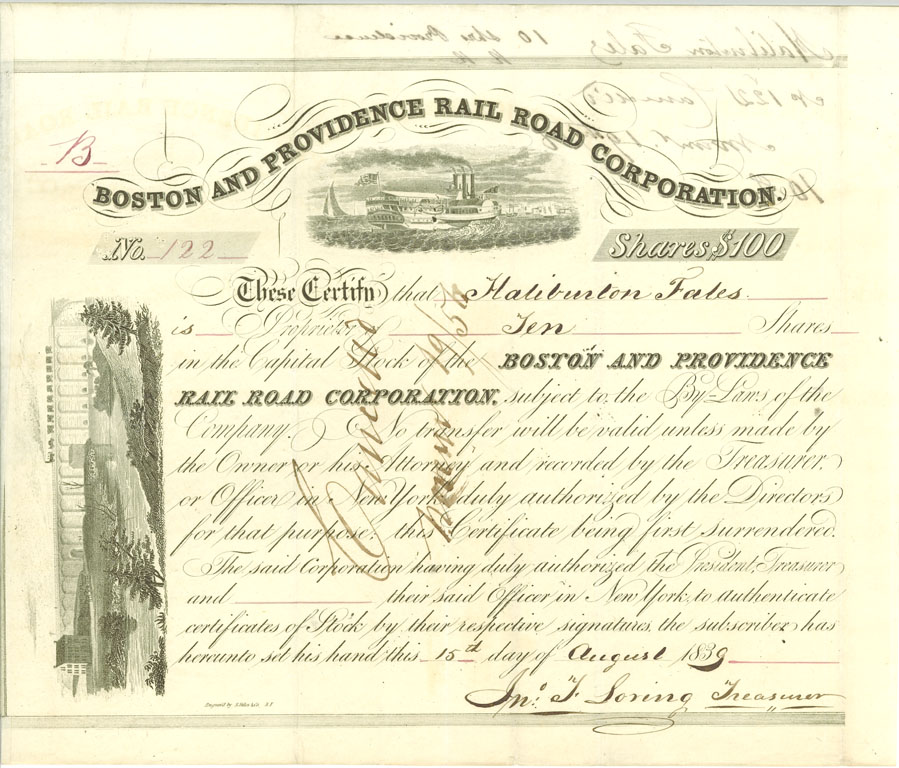 B
BOSTON AND PROVIDENCE RAIL ROAD CORPORATION.
No. 122
Shares, $100
These Certify that Haliburton Fales
is Proprietor of Ten Shares
in the Capital Stock of the BOSTON AND PROVIDENCE
RAIL ROAD CORPORATION, subject to the By-Laws of the
Company. No transfer will be valid unless made by
the Owner or his Attorney and recorded by the Treasurer,
or Officer in New York duly authorized by the Directors
for that purpose, this Certificate being first surrendered.
The said Corporation having duly authorized the President, Treasurer
and their said Officer in New York, to authenticate
certificates of Stock by their respective signatures, the subscriber has
hereunto set his hand this 15th day of August 1839
Jno. F Loring Treasurer
Cancelled
Engraved by